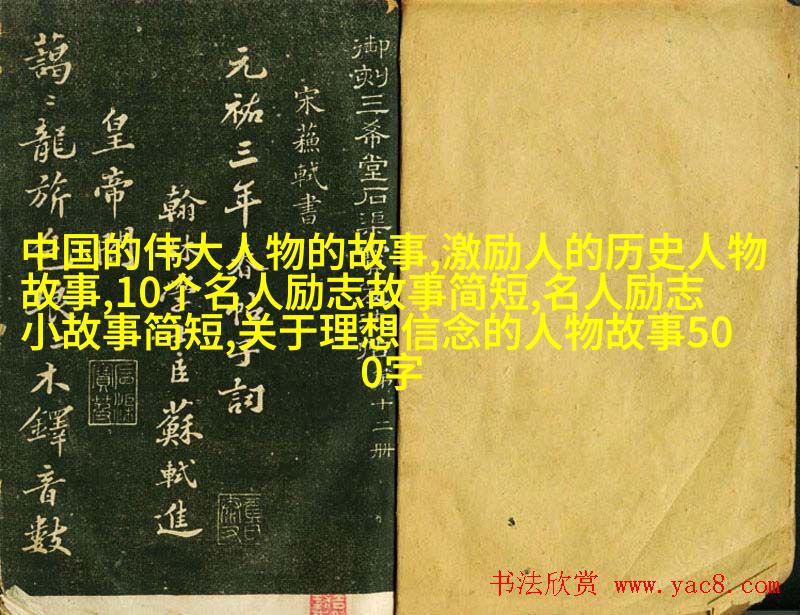 御刻三希堂石渠
第十二册
宋蘇軾書
元祐三年春帖子詞
翰林學士臣蘇軾進
皇帝閣
藹〻龍旂色
木鐸音數
中国的伟大人物的故事,激励人的历史人物
故事,10个名人励志故事简短,名人励志
小故事简短,关于理想信念的人物故事50
0字
书法欣赏 www.yac8.com